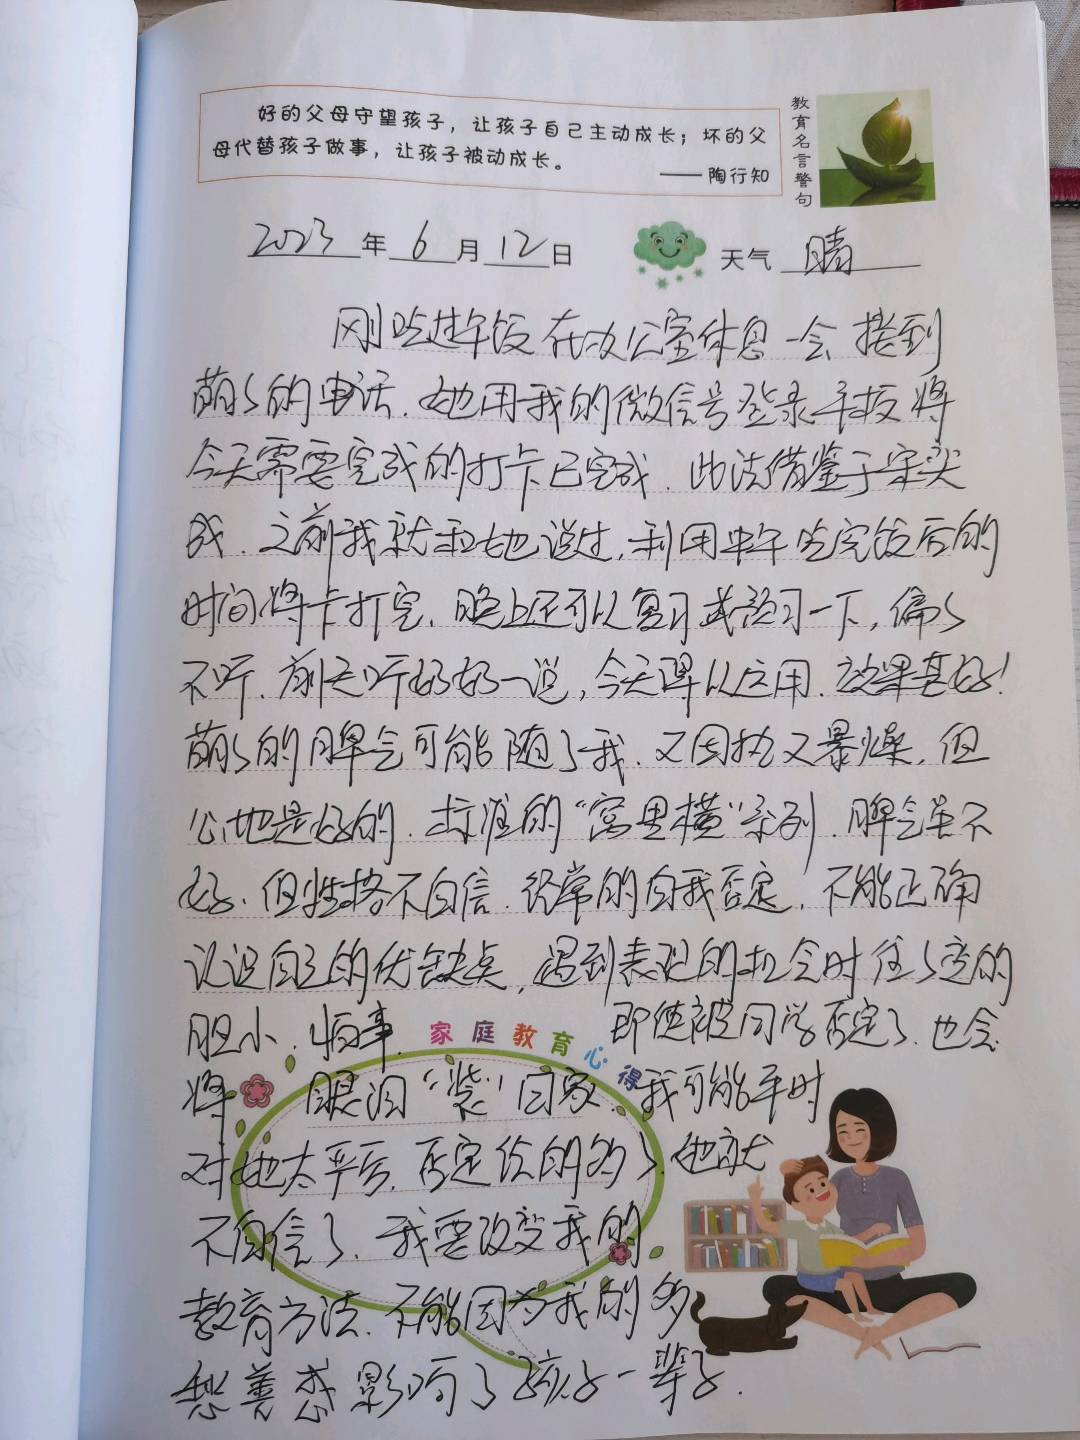 好的父母守望孩子，让孩子自己主动成长；坏的父
母代替孩子做事，让孩子被动成长。
——陶行知
教育名言警句
2023年6月12日 天气 晴
刚吃过午饭在办公室休息一会接到
萌萌的电话.她用我的微信号登录平板将
今天需要完成的打卡已完成.此法借鉴于宋奕
成.之前我就和她说过,利用中午吃完饭后的
时间将卡打完.晚上还可以复习或预习一下,偏偏
不听.前天听好好一说,今天得以应用.效果甚好!
萌萌的脾气可能随了我.又固执又暴燥.但
心地是好的.标准的“窝里横”系列.脾气虽不
好.但性格不自信.经常的自我否定,不能正确
认识自己的优缺点,遇到表现的机会时往往变的
胆小.怕事. 即使被同学否定了也会
家庭教育心得
将眼泪“装”回家.我可能平时
对她太严厉.否定给的多了.她就
不自信了.我要改变我的
教育方法.不能因为我的多
愁善感影响了孩子一辈子.